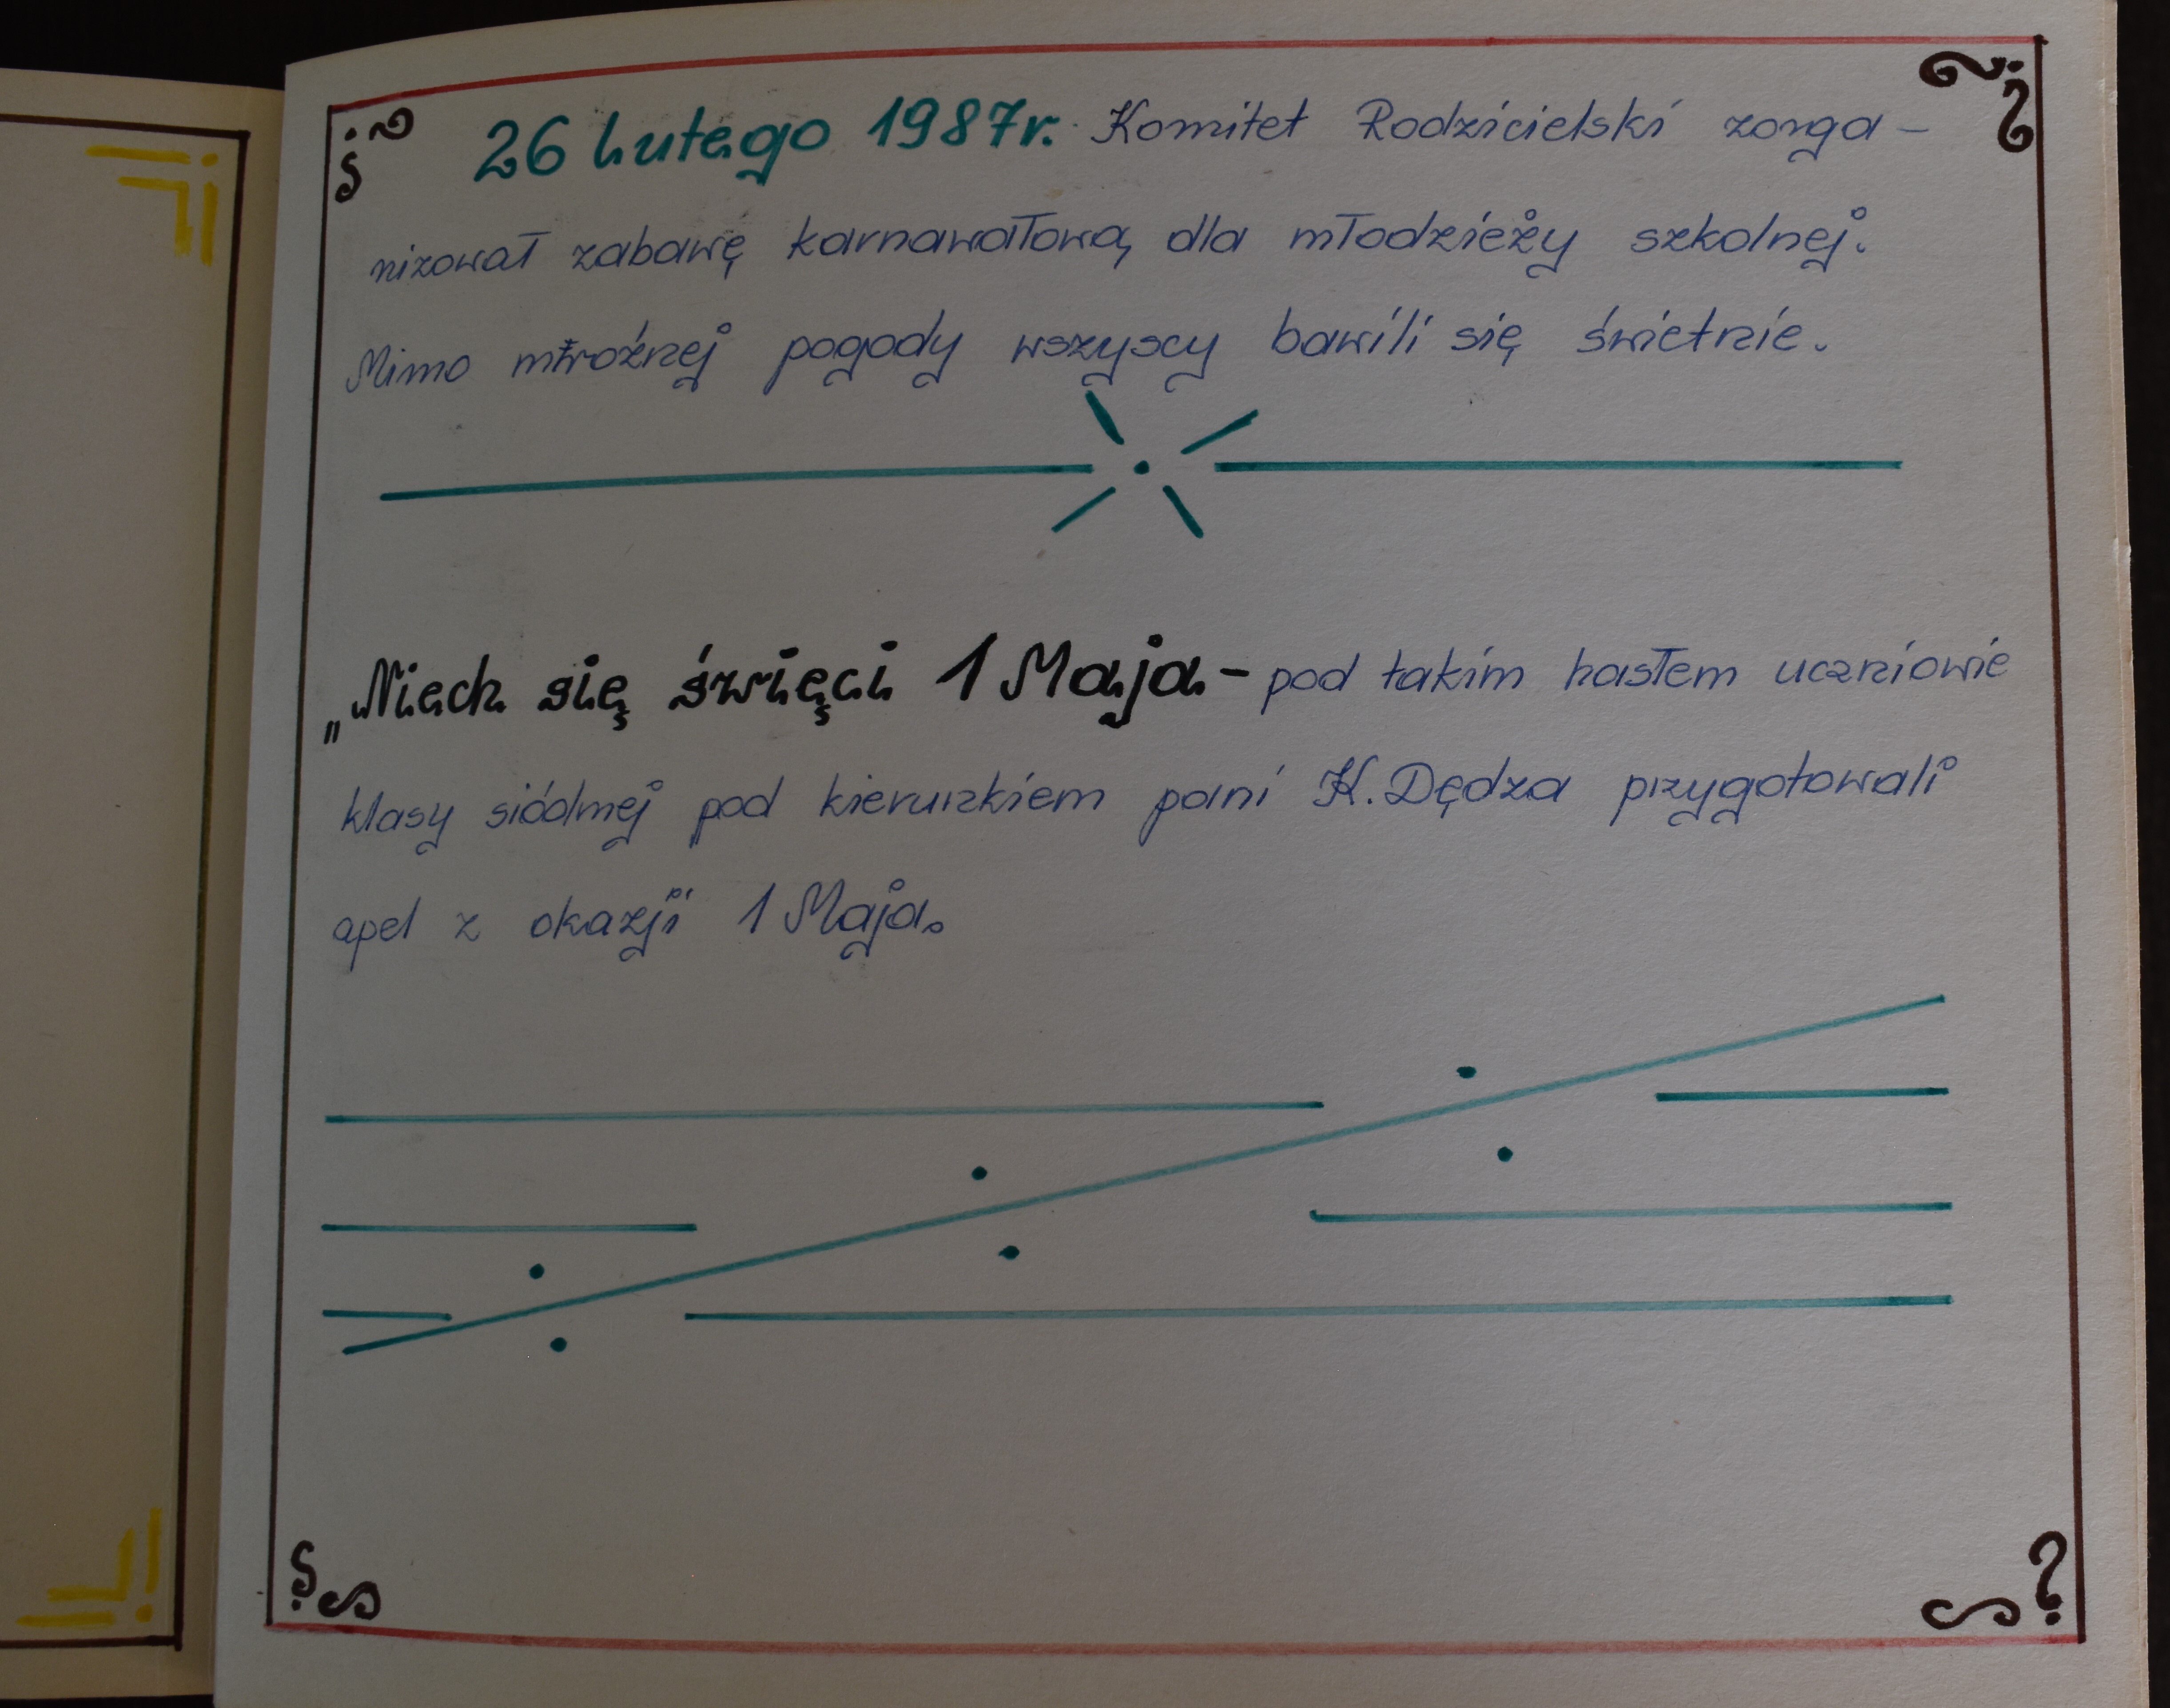 26 Lutego 1987r. Komitet Rodzicielski zorga-
nizował zabawę karnawałową dla młodzieży szkolnej.
Mimo mroźnej pogody wszyscy bawili się świetnie.
„Niech się święci 1 Maja - pod takim hasłem uczniowie
klasy siódmej pod kierunkiem pani K. Dędza przygotowali
apel z okazji 1 Maja.